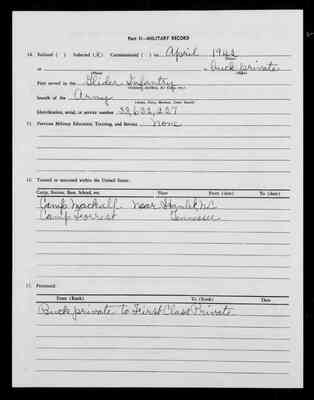 Part II—MILITARY RECORD
14. Enlisted ( ) Selected (x) Commissioned ( ) in April 1942
as Buck private
(Place)
First served in the Glider Infantry
(Infantry, Artillery, Air Corps, etc.)
branch of the Army
(Army, Navy, Marines, Coast Guard)
Identification, serial, or service number 33,632,227
15. Previous Military Education, Training, and Service None
16. Trained or stationed within the United States:
Camp, Station, Base, School, etc. Near From (date) To (date)
Camp Mackall near Hamlet, N.C.
Camp Forrest Tennessee
17. Promoted:
From (Rank) To (Rank) Date
Buck private to First Class Private